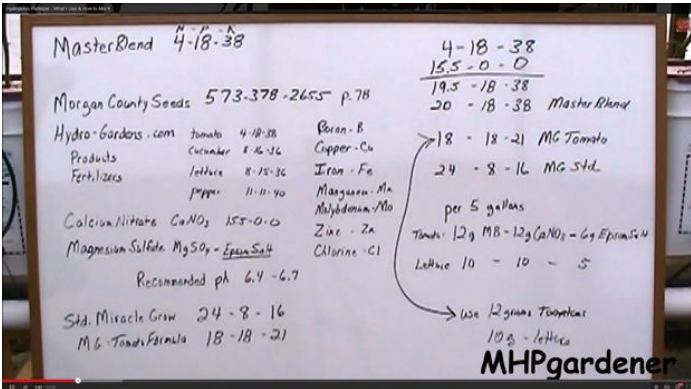 Hydroponic Fertilizer - What I Use & How to Mix It
N - P - K
MasterBlend 4-18-38
Morgan County Seeds 573-378-2655 p.78
Hydro-Gardens.com
Products
Fertilizers
tomato 4-18-38
Cucumber 8-16-36
lettuce 8-15-36
pepper 11-11-40
Boron - B
Copper - Cu
Iron - Fe
Manganese - Mn
Molybdenum - Mo
Zinc - Zn
Chlorine - Cl
Calcium Nitrate CaNO3 155-0-0
Magnesium Sulfate MgSO4 - Epsom Salt
Recommended ph 6.4 - 6.7
Std. Miracle Grow 24 - 8 - 16
MG - Tomato Formula 18 - 18 - 21
4 - 18 - 38
15.5 - 0 - 0
19.5 - 18 - 38
20 - 18 - 38 MasterBlend
18 - 18 - 21 MG Tomato
24 - 8 - 16 MG Std
per 5 gallons
Tomato - 12g MB - 12g CaNO3 - 6g Epsom Salt
Lettuce 10 - 10 - 5
use 12 grams Tomatoes
10g - lettuce
MHPgardener